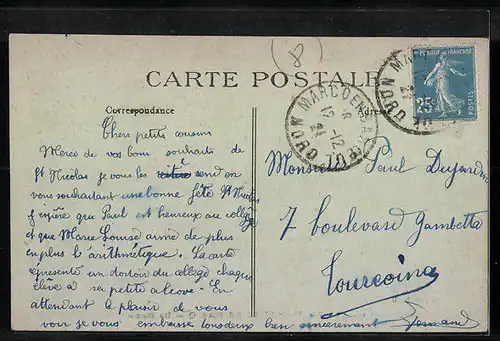 (8)
CARTE POSTALE
Correspondance
MARCQ EN BAROEUL
NORD
12-12
21
REPUBLIQUE FRANCAISE
25c
POSTES
Chers petits cousins
Merci de vos bons souhaits de
St Nicolas je vous les rend en
vous souhaitant une bonne fête St Nicolas
j'espère que Paul est heureux au collège
et que Marie Louise aime de plus
en plus le arithmétique. La carte
représente un dortoir du collège chaque
élève a sa petite alcove. En
attendant le plaisir de vous
voir je vous embrasse tous deux bien sincèrement
Monsieur Paul Dujardin
7 boulevard Gambetta
Tourcoing